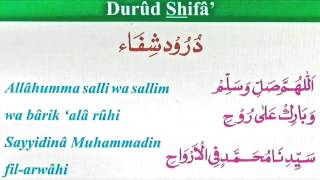 Durûd Shifâ’
دُرُود شِفَاء
Allâhumma salli wa sallim
اَللّٰهُمَّ صَلِّ وَسَلِّمْ
wa bârik ‘alâ rûhi
وَبَارِكْ عَلٰى رُوْحِ
Sayyidinâ Muhammadin
سَيِّدِنَا مُحَمَّدٍ فِي الْاَرْوَاحِ
fil-arwâhi